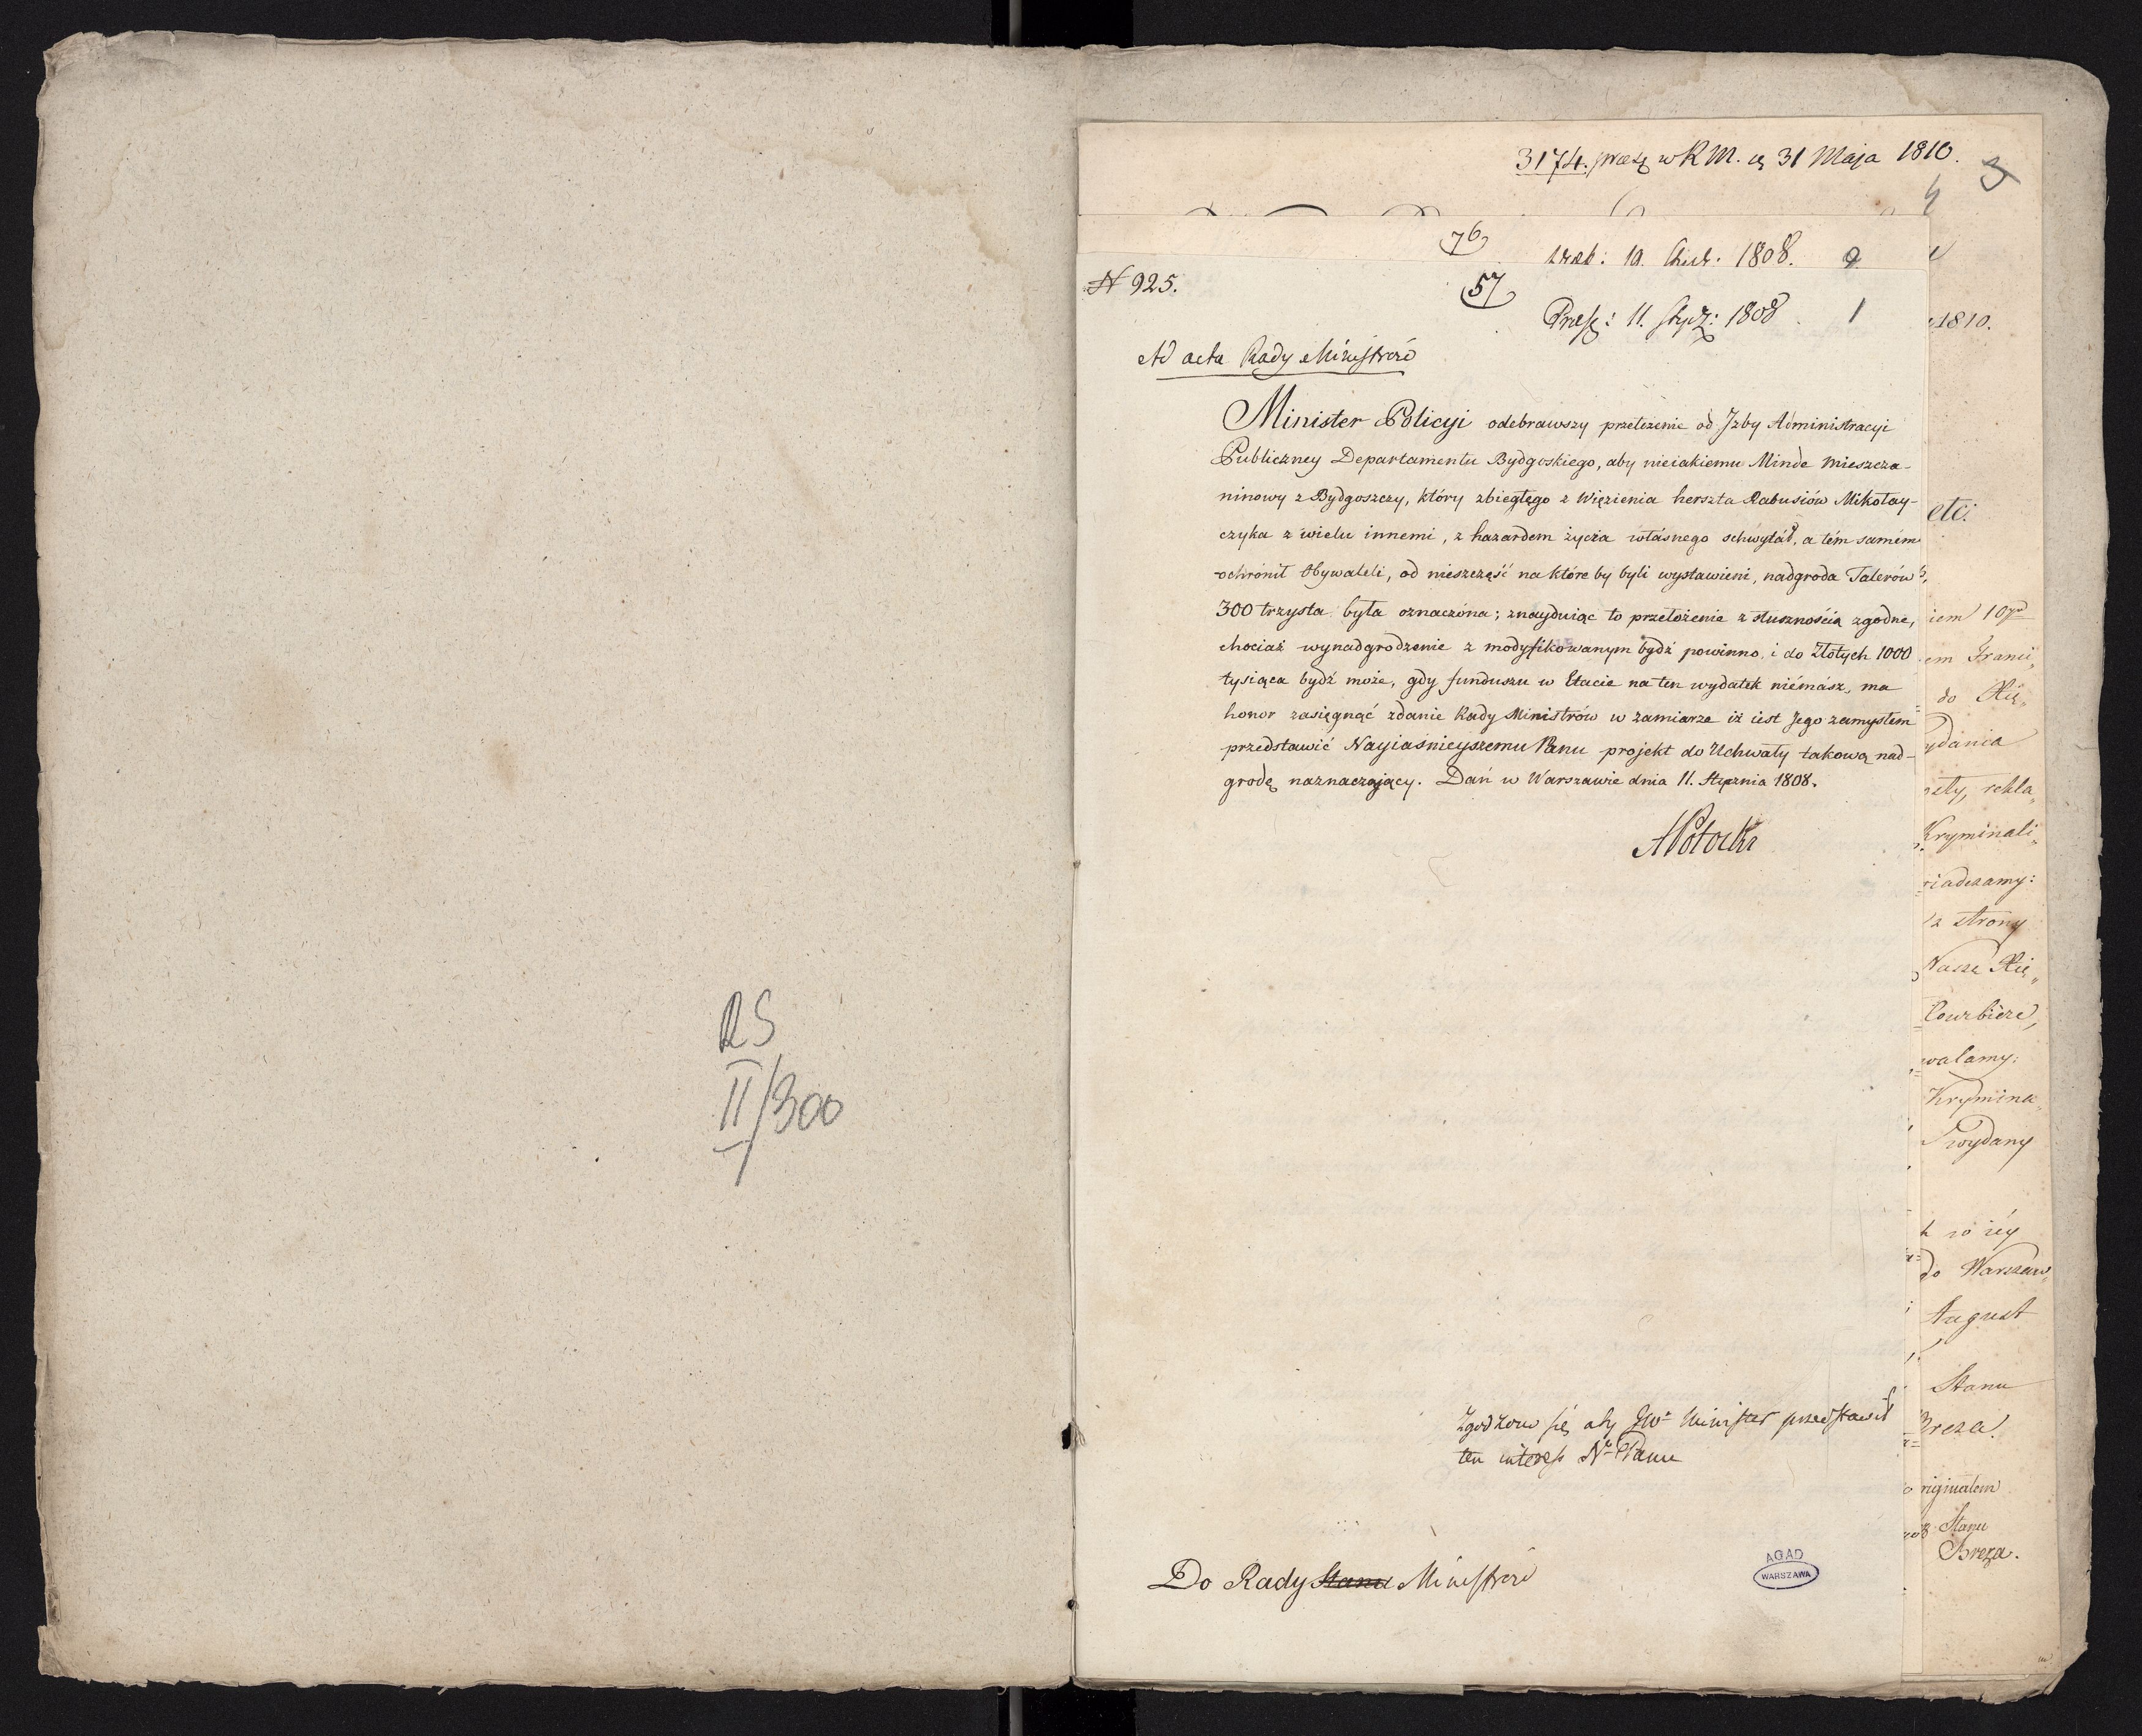 RS
II/300
3174. praes w R M. d. 31 Maja 1810.
3
4
76
10. 1808. 2
N 925.
57
Praes: 11. Stycz: 1808 1
Ad acta Rady Ministrów
Minister Policyi odebrawszy przełożenie od Izby Administracyi
Publiczney Departamentu Bydgoskiego, aby nieiakiemu Minde Mieszcza-
ninowy z Bydgoszczy, który zbiegłego z Więzienia herszta Rabusiów Mikołay-
czyka z wielu innemi, z hazardem życia własnego schwytał, a tém samém
ochronił Obywateli, od nieszczęść na które by byli wystawieni, nadgroda Talerów
300 trzysta była oznaczona; znayduiąc to przełożenie z słusznością zgodne,
chociaż wynadgrodzenie z modyfikowanym bydź powinno, i do Złotych 1000
tysiąca bydź może, gdy funduszu w Etacie na ten wydatek niémász, ma
honor zasięgnąć zdanie Rady Ministrów w zamiarze iż iest Jego zamysłem
przedstawić Nayiaśnieyszemu Panu projekt do Uchwały takową nad-
grodę naznaczający. Dań w Warszawie dnia 11. Stycznia 1808.
APotocki
Zgodzono się aby JW Minister przedstawił
ten interess N. Panu
Do Rady Stanu Ministrów
AGAD
WARSZAWA
1810.
etc.
iem 10
em Franci„
do Xię„
ydania
rekla„
Kryminali„
iadczamy:
z strony
Nasze Xię„
Courbiere,
walamy:
Krymina„
wydany
do Warszaw„
August
Stanu
Breza.
riginałem
Stanu
Breza.